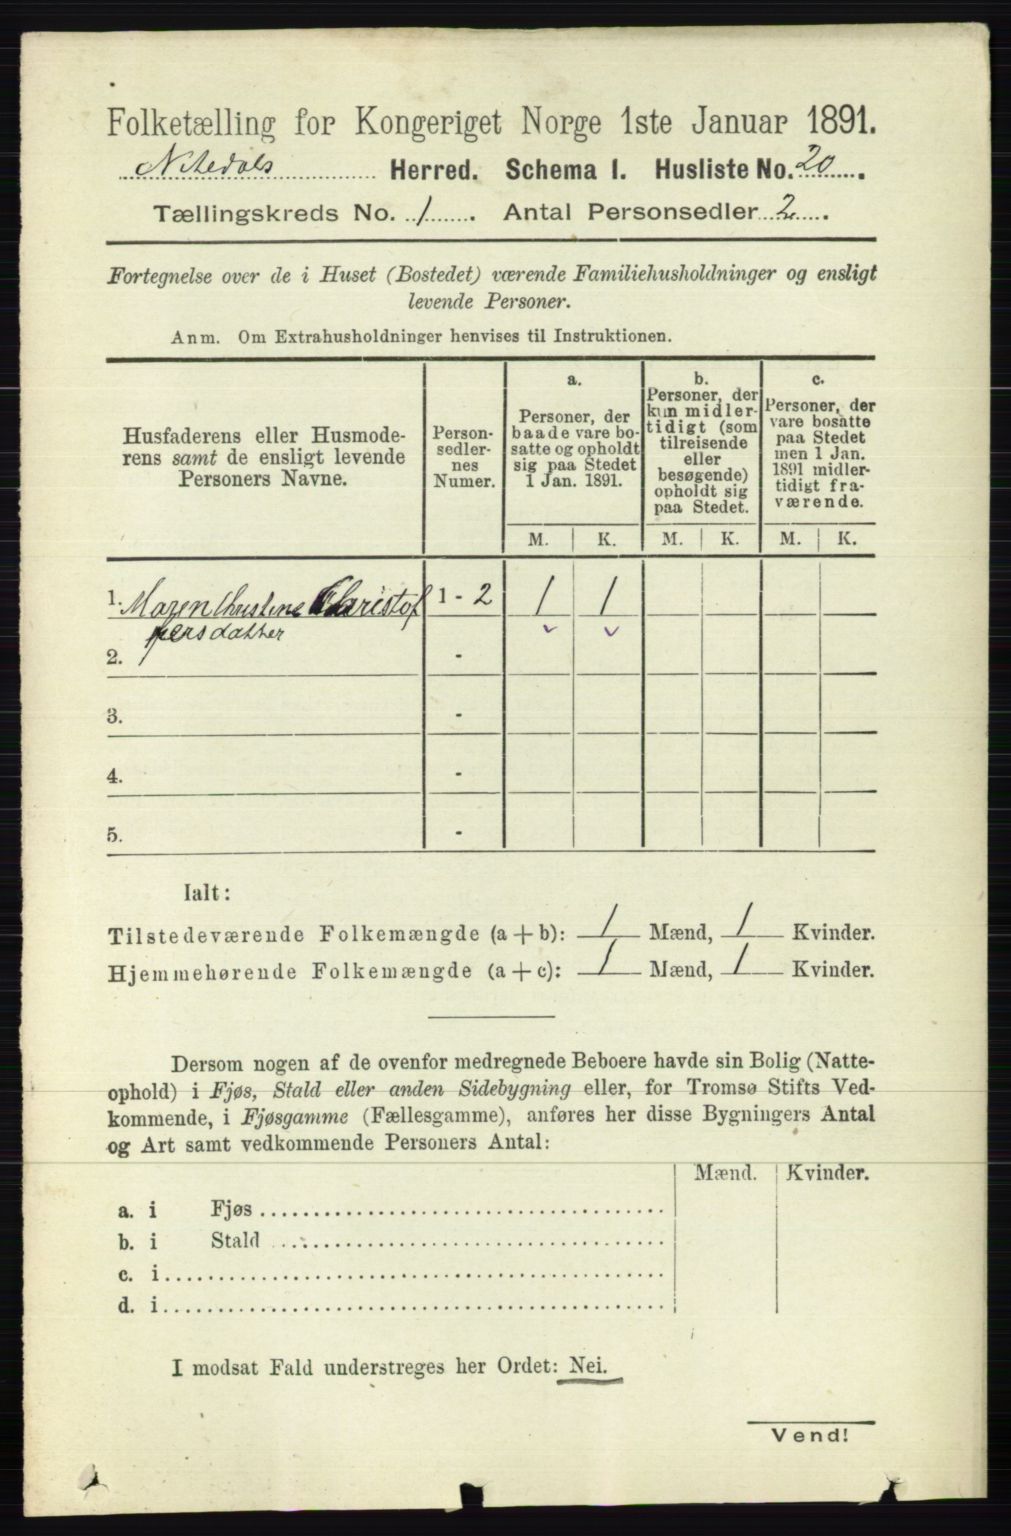 Folketælling for Kongeriget Norge 1ste Januar 1891.
Nitedals Herred. Schema I. Husliste No. 20.
Tællingskreds No. 1. Antal Personsedler 2.
Fortegnelse over de i Huset (Bostedet) værende Familiehusholdninger og ensligt
levende Personer.
Anm. Om Extrahusholdninger henvises til Instruktionen.
Husfaderens eller Husmode-
rens samt de ensligt levende
Personers Navne.
Person-
sedler-
nes
Numer.
a.
Personer, der
baade vare bo-
satte og opholdt
sig paa Stedet
1 Jan. 1891.
b.
Personer, der
kun midler-
tidigt (som
tilreisende
eller
besøgende)
opholdt sig
paa Stedet.
c.
Personer, der
vare bosatte
paa Stedet
men 1 Jan.
1891 midler-
tidigt fra-
værende.
M. K. M. K. M. K.
1. Maren Christine Christof 1 - 2 1 1
fersdatter
2. -
3. -
4. -
5. -
Ialt:
Tilstedeværende Folkemængde (a + b): 1 Mænd, 1 Kvinder.
Hjemmehørende Folkemængde (a + c): 1 Mænd, 1 Kvinder.
Dersom nogen af de ovenfor medregnede Beboere havde sin Bolig (Natte-
ophold) i Fjøs, Stald eller anden Sidebygning eller, for Tromsø Stifts Ved-
kommende, i Fjøsgamme (Fællesgamme), anføres her disse Bygningers Antal
og Art samt vedkommende Personers Antal:
Mænd. Kvinder.
a. i Fjøs
b. i Stald
c. i
d. i
I modsat Fald understreges her Ordet: Nei.
Vend!